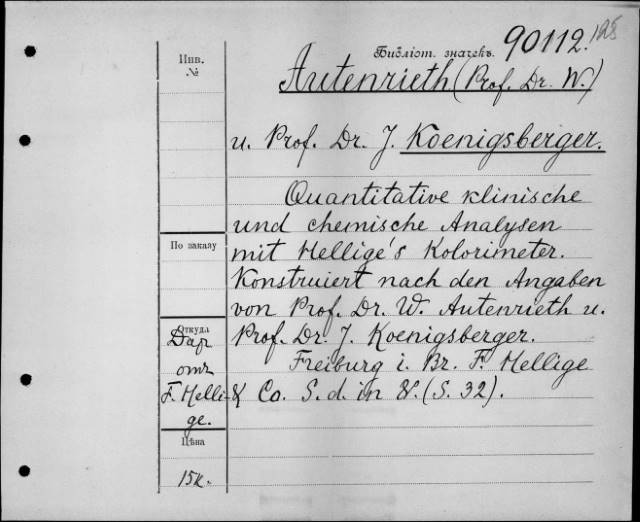 Библіот. значекъ. 90112.
Инв.
№
Autenrieth (Prof. Dr. W.)
u. Prof. Dr. J. Koenigsberger.
Quantitative klinische
und chemische Analysen
По заказу
mit Hellige's Kolorimeter.
Konstruiert nach den Angaben
von Prof. Dr. W. Autenrieth u.
Prof. Dr. J. Koenigsberger.
Freiburg i. Br. F. Hellige
& Co. S. d. in 8. (S. 32).
Откуда
Дар
отъ
F. Helli-
ge.
Цѣна
15к.